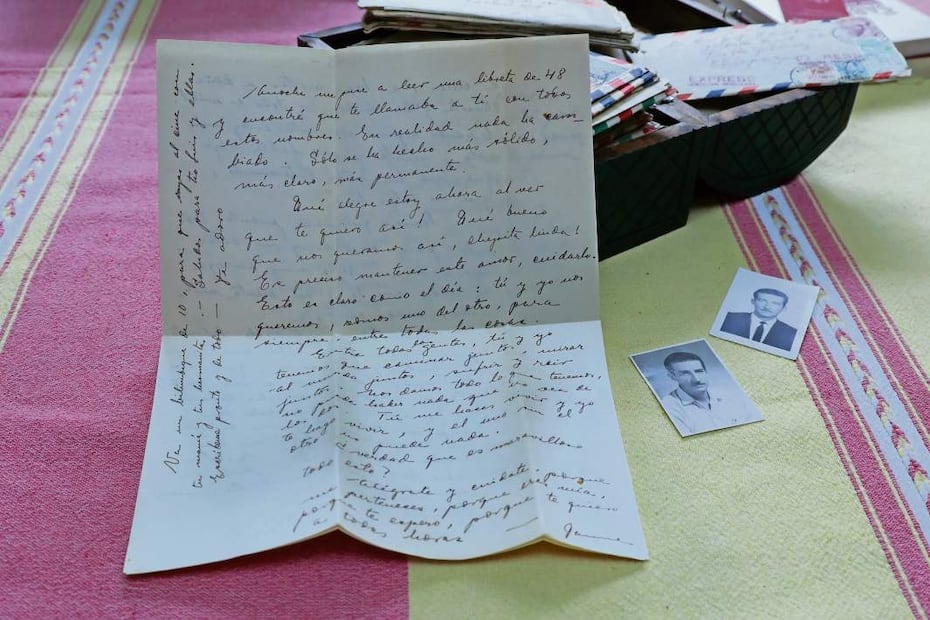 Anoche me puse a leer una libreta de 48
y encontré que te llamaba a ti con todos
estos nombres. En realidad nada ha cam-
biado. Sólo se ha hecho más sólido,
más claro, más permanente.
Qué alegre estoy ahora al ver
que te quiero así! Qué bueno
que nos queramos así, chiquita linda!
Es preciso mantener este amor, cuidarlo.
Esto es claro como el día: tú y yo nos
queremos, somos uno del otro, para
siempre, entre todas las cosas.
Entre todas gentes, tú y yo
tenemos que caminar juntos, mirar
al mundo juntos, sufrir y reir
juntos. Nos damos todo lo que tenemos,
no para haber nada que no sea de
los dos. Tú me haces vivir y yo
te hago vivir, y el uno sin el
otro no puede nada.
verdad que es maravilloso
todo esto?
Alégrate y cuídate, porque
me perteneces, porque eres mía,
porque te espero, porque te quiero
a todas horas — Jaime
Va un billetique de 10, para que vayas al cine con
tu mamá y tus hermanas. — Saludos para tus tíos y ellas.
Escríbeme pronto y de todo — Te adoro
EXPRESO